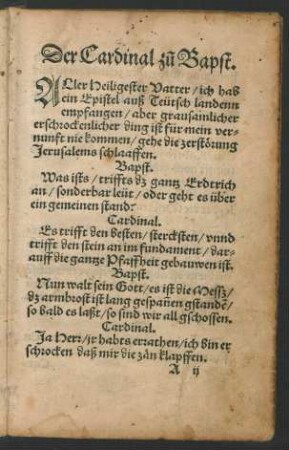 Der Cardinal zů Bapst.
ALler Heiligester Vatter / ich hab
ein Epistel auß Teütsch landenn
empfangen / aber grausamlicher
erschrockenlicher ding ist für mein ver-
nunfft nie kommen / gehe die zerstörung
Jerusalems schlaaffen.
Bapst.
Was ists / triffts dz gantz Erdtrich
an / sonderbar leüt / oder geht es über
ein gemeinen stand:
Cardinal.
Es trifft den besten / stercksten / vnnd
trifft den stein an im fundament / dar-
auff die gantze Pfaffheit gebauwen ist.
Bapst.
Nun walt sein Gott / es ist die Messz /
dz armbrost ist lang gespañen gstandẽ /
so bald es laßt / so sind wir all gschossen.
Cardinal.
Ja Herr / ir habts errathen / ich bin er
schrocken daß mir die zän klapffen.
A ij